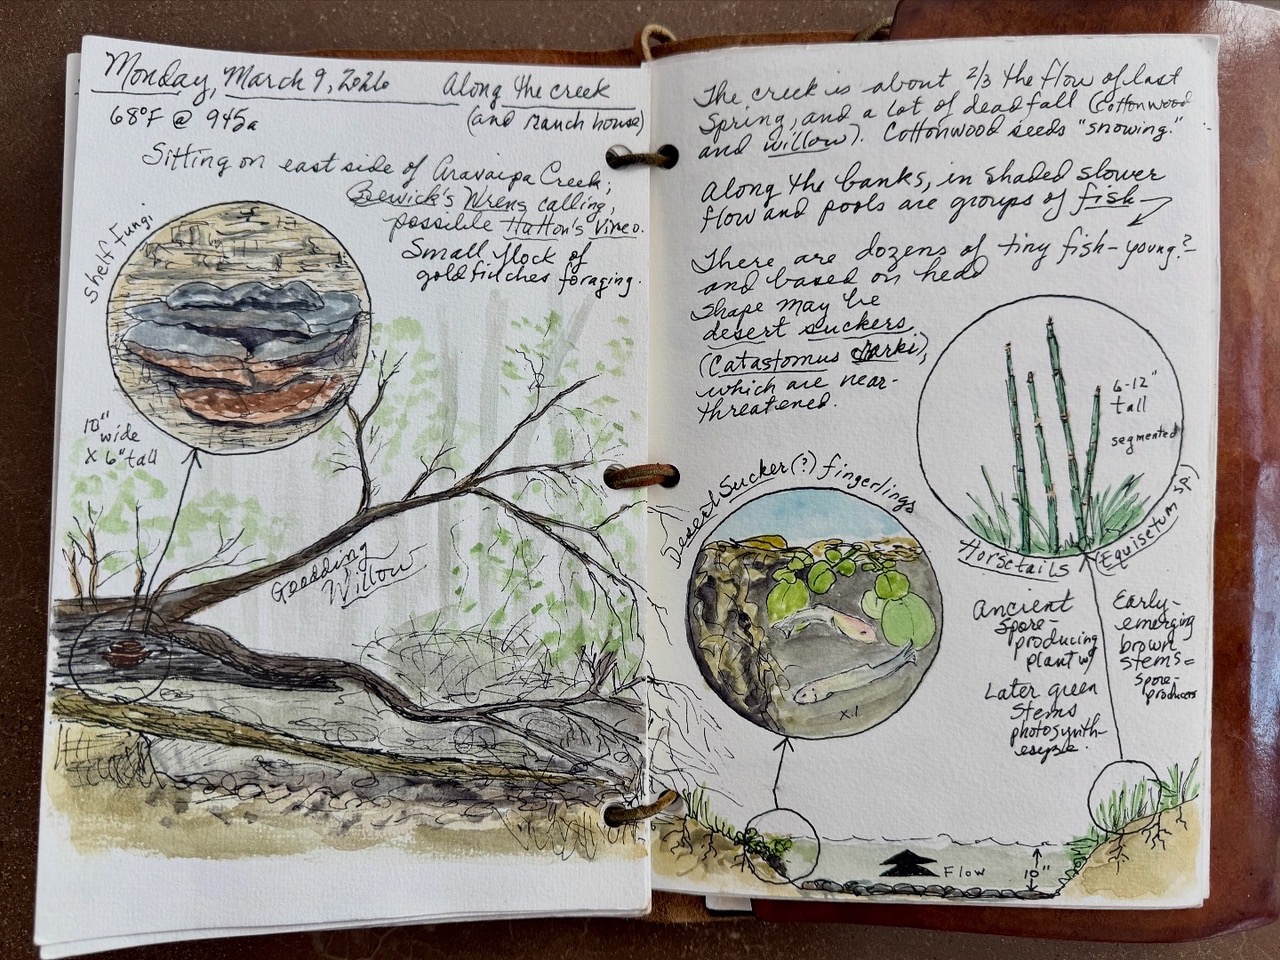 Monday, March 9, 2026
Along the creek
(and ranch house)
68°F @ 945a
Sitting on east side of Aravaipa Creek;
Bewick's Wrens calling,
possible Hutton's Vireo.
Small flock of
goldfinches foraging.
Shelf Fungi
10" wide
x 6" tall
Goodding
Willow
The creek is about 2/3 the flow of last
Spring, and a lot of deadfall (Cottonwood
and willow). Cottonwood seeds "snowing."
Along the banks, in shaded slower
flow and pools are groups of fish
There are dozens of tiny fish - young?
and based on head
shape may be
desert suckers
(Catastomus clarki),
which are near-
threatened.
6-12"
tall
segmented
Horsetails (Equisetum sp)
Desert Sucker (?) fingerlings
x.1
Ancient
spore-
producing
plant w/
Later green
stems
photosynth-
esype.
Early-
emerging
brown
stems =
spore-
producers
Flow
10"